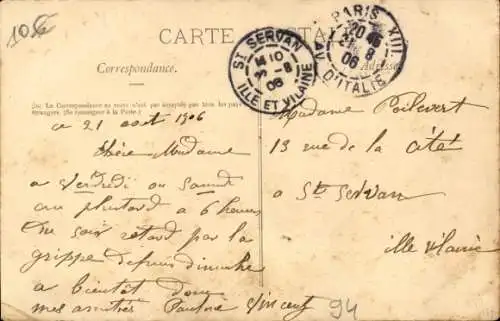 10€
CARTE POSTALE
Correspondance.
Adresse
La Correspondance au recto n'est pas acceptée par tous les pays
étrangers. (Se renseigner à la Poste.)
ST SERVAN
10
8-8
06
ILLE ET VILAINE
PARIS XIII
20
8
06
AV. D'ITALIE
ce 21 aout 1906
Chère Madame
a Vendredi ou Samedi
au plustard a 6 heures
suis retard par la
grippe depuis dimanche
a bientôt donc
mes amitiés Pauline Vincent
Madame Poilevert
13 rue de la cité
a St Servan
ille vilaine
94